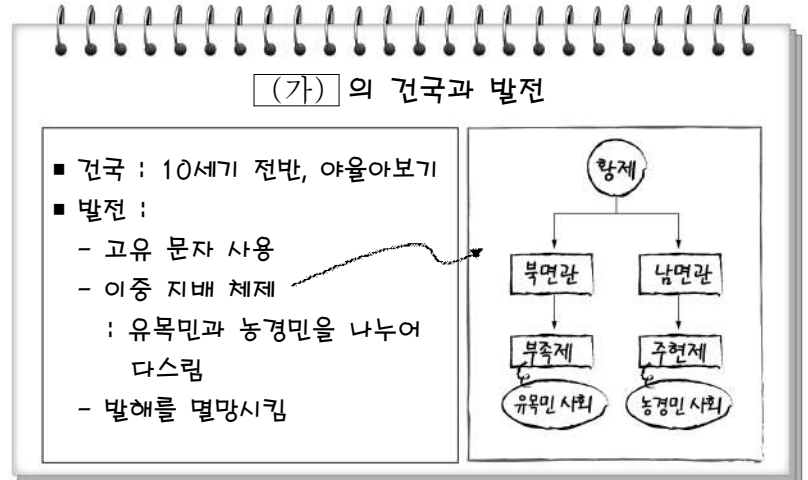 (가) 의 건국과 발전
■ 건국 : 10세기 전반, 야율아보기
■ 발전 :
- 고유 문자 사용
- 이중 지배 체제
: 유목민과 농경민을 나누어
다스림
- 발해를 멸망시킴
황제
북면관 남면관
부족제 주현제
유목민 사회 농경민 사회